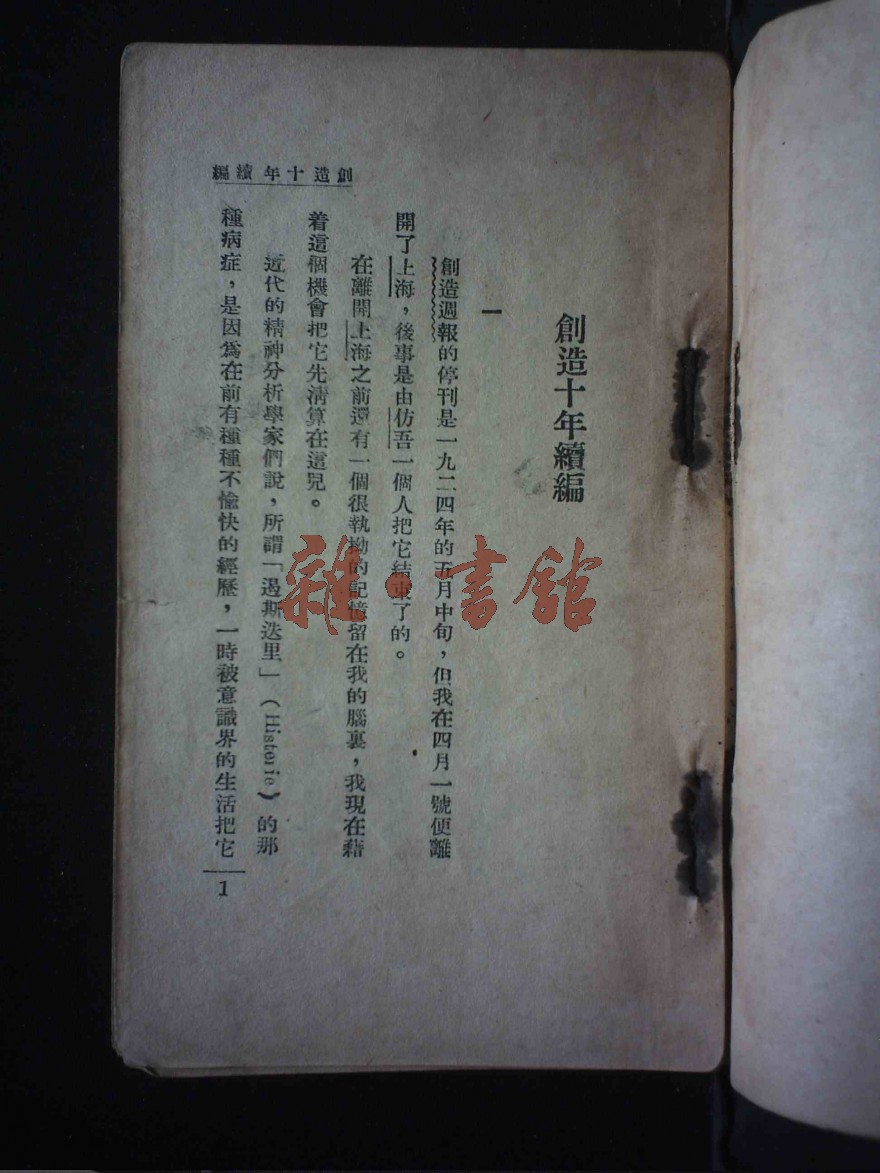 創造十年續編
創造十年續編
一
創造週報的停刊是一九二四年的五月中旬，但我在四月一號便離
開了上海，後事是由仿吾一個人把它結束了的。
在離開上海之前還有一個很執拗的記憶留在我的腦裏，我現在藉
着這個機會把它先清算在這兒。
近代的精神分析學家們說，所謂「遏斯迭里」（Histerie）的那
種病症，是因爲在前有種種不愉快的經歷，一時被意識界的生活把它
1
雜·書館